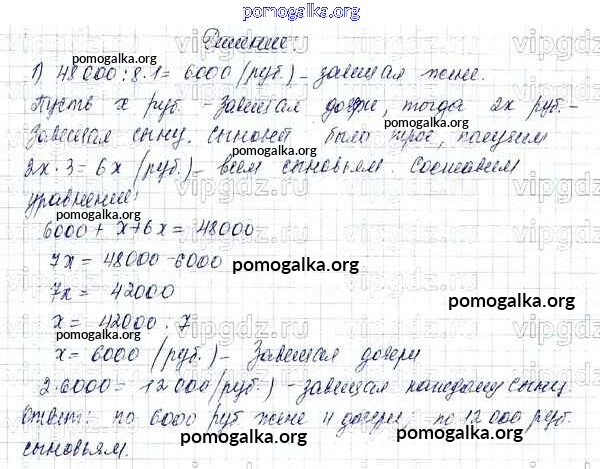 pomogalka.org
Решение:
1) 48000:8·1= 6000 (руб.) – завещал жене.
Пусть x руб. – завещал дочери, тогда 2x руб. –
завещал сыну. Сыновей было трое, получим
2x·3=6x (руб.) – всем сыновьям. Составим
уравнение:
6000 + x+6x = 48000
7x = 48000-6000
7x = 42000
x = 42000 : 7
x = 6000 (руб.) – завещал дочери
2·6000= 12000 (руб.) – завещал каждому сыну.
Ответ: по 6000 руб. жене и дочери, по 12000 руб.
сыновьям.
pomogalka.org
pomogalka.org
pomogalka.org
pomogalka.org
pomogalka.org
pomogalka.org
pomogalka.org
pomogalka.org
pomogalka.org
pomogalka.org
pomogalka.org
vipgdz.ru
vipgdz.ru
vipgdz.ru
vipgdz.ru